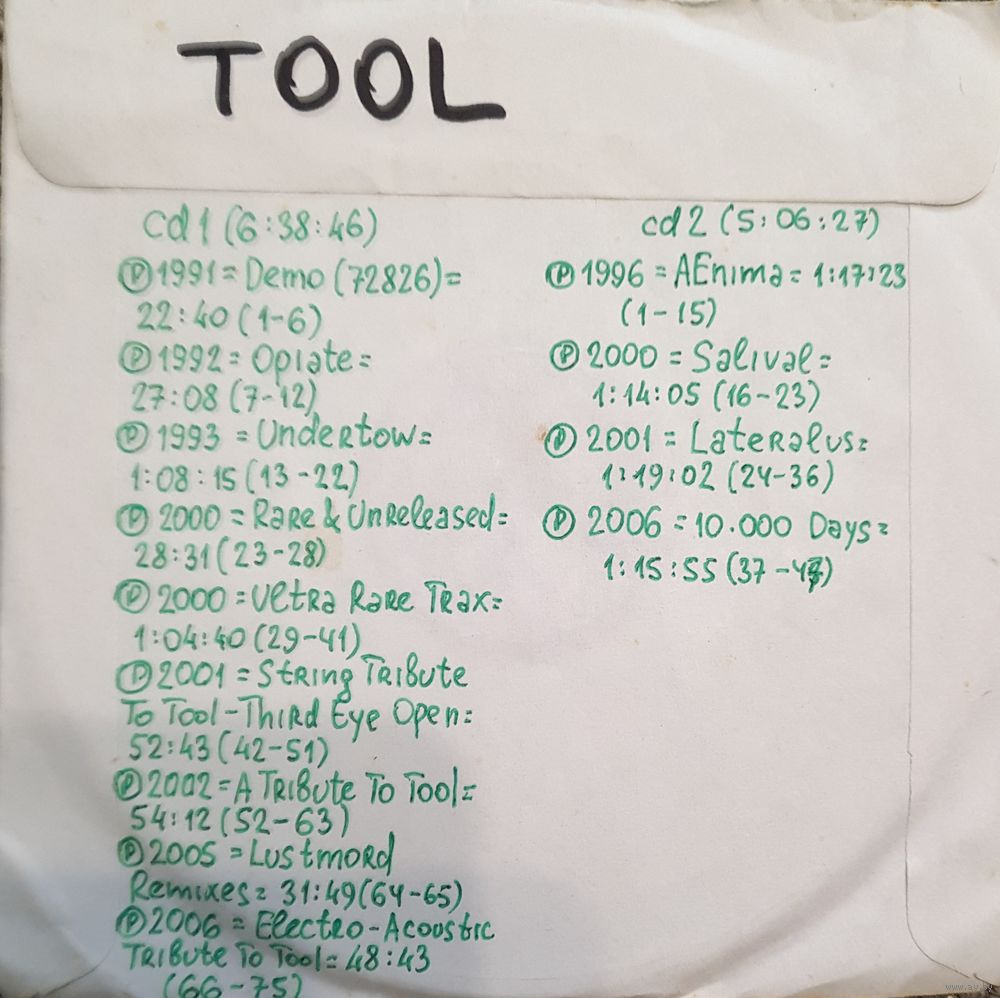 TOOL
cd 1 (6:38:46)
Ⓟ 1991 = Demo (72826) =
22:40 (1-6)
Ⓟ 1992 = Opiate =
27:08 (7-12)
Ⓟ 1993 = Undertow =
1:08:15 (13-22)
Ⓟ 2000 = Rare & Unreleased =
28:31 (23-28)
Ⓟ 2000 = Ultra Rare Trax =
1:04:40 (29-41)
Ⓟ 2001 = String Tribute
To Tool - Third Eye Open =
52:43 (42-51)
Ⓟ 2002 = A Tribute To Tool =
54:12 (52-63)
Ⓟ 2005 = Lustmord
Remixes = 31:49 (64-65)
Ⓟ 2006 = Electro-Acoustic
Tribute To Tool = 48:43
(66-75)
cd 2 (5:06:27)
Ⓟ 1996 = AEnima = 1:17:23
(1-15)
Ⓟ 2000 = Salival =
1:14:05 (16-23)
Ⓟ 2001 = Lateralus =
1:19:02 (24-36)
Ⓟ 2006 = 10.000 Days =
1:15:55 (37-47)